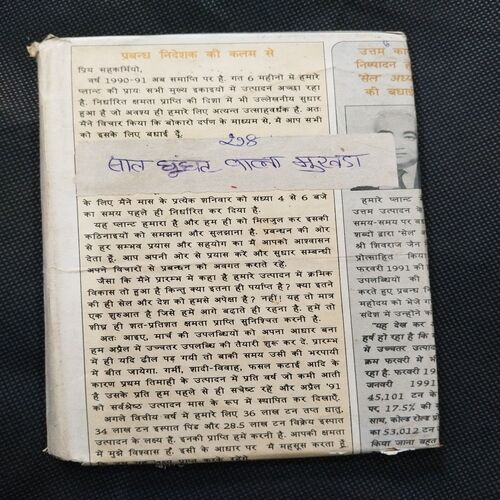 प्रबन्ध निदेशक की कलम से
प्रिय सहकर्मियो,
वर्ष 1990-91 अब समाप्ति पर है. गत 6 महीनों में हमारे
प्लान्ट की प्रायः सभी मुख्य इकाइयों में उत्पादन अच्छा रहा
है. निर्धारित क्षमता प्राप्ति की दिशा में भी उल्लेखनीय सुधार
हुआ है जो अवश्य ही हमारे लिए अत्यन्त उत्साहवर्धक है. अतः
मैंने विचार किया कि बोकारो दर्पण के माध्यम से, मैं आप सभी
को इसके लिए बधाई दूँ.
२७४
सात घुंघट वाला मुखड़ा
के लिए मैंने मास के प्रत्येक शनिवार को संध्या 4 से 6 बजे
का समय पहले ही निर्धारित कर दिया है.
यह प्लान्ट हमारा है और हम ही को मिलजुल कर इसकी
कठिनाइयों को समझना और सुलझाना है. प्रबन्धन की ओर
से हर सम्भव प्रयास और सहयोग का मैं आपको आश्वासन
देता हूँ. आप अपनी ओर से प्रयास करें और सुधार सम्बन्धी
अपने विचारों से प्रबन्धन को अवगत कराते रहें.
जैसा कि मैंने प्रारम्भ में कहा है हमारे उत्पादन में क्रमिक
विकास तो हुआ है किन्तु क्या इतना ही पर्याप्त है? क्या इतने
की ही सेल और देश को हमसे अपेक्षा है? नहीं! यह तो मात्र
एक शुरुआत है जिसे हमें आगे बढ़ाते ही रहना है. हमें तो
शीघ्र ही शत-प्रतिशत क्षमता प्राप्ति सुनिश्चित करनी है.
अतः आइए, मार्च की उपलब्धियों को अपना आधार बना
हम अप्रैल में उच्चतर उपलब्धि की तैयारी शुरू कर दें. प्रारम्भ
में ही यदि ढील पड़ गयी तो बाकी समय उसी की भरपायी
में बीत जायेगा. गर्मी, शादी-विवाह, फसल कटाई आदि के
कारण प्रथम तिमाही के उत्पादन में प्रति वर्ष जो कमी आती
है उसके प्रति हम पहले से ही सचेष्ट रहें और अप्रैल '91
को सर्वश्रेष्ठ उत्पादन मास के रूप में स्थापित कर दिखाएँ.
अगले वित्तीय वर्ष में हमारे लिए 36 लाख टन तप्त धातु,
34 लाख टन इस्पात पिंड और 28.5 लाख टन विक्रेय इस्पात
उत्पादन के लक्ष्य हैं. इनकी प्राप्ति हमें करनी है. आपकी क्षमता
में मुझे विश्वास है. इसी के आधार पर मैं महसूस करता हूँ
6
उत्तम का
निष्पादन ह
'सेल' अध्य
की बधाई
हमारे प्लान्ट
उत्तम उत्पादन के
समय-समय पर बध
शब्दों द्वारा "सेल"
श्री शिवराज जैन
प्रोत्साहित किया
फरवरी 1991 की
उपलब्धियों की
करते हुए प्रबन्ध नि
महोदय को भेजे ग
संदेश में उन्होंने
"यह देख कर
हर्ष हो रहा है कि
में उच्चतर उत्पाद
क्रम फरवरी में भ
रहा है. फरवरी 19
जनवरी 1991
45,101 टन के
पर, 17.5% की
साथ, कोल्ड रोल्ड
का 53,012 टन
किया जाना बहुत